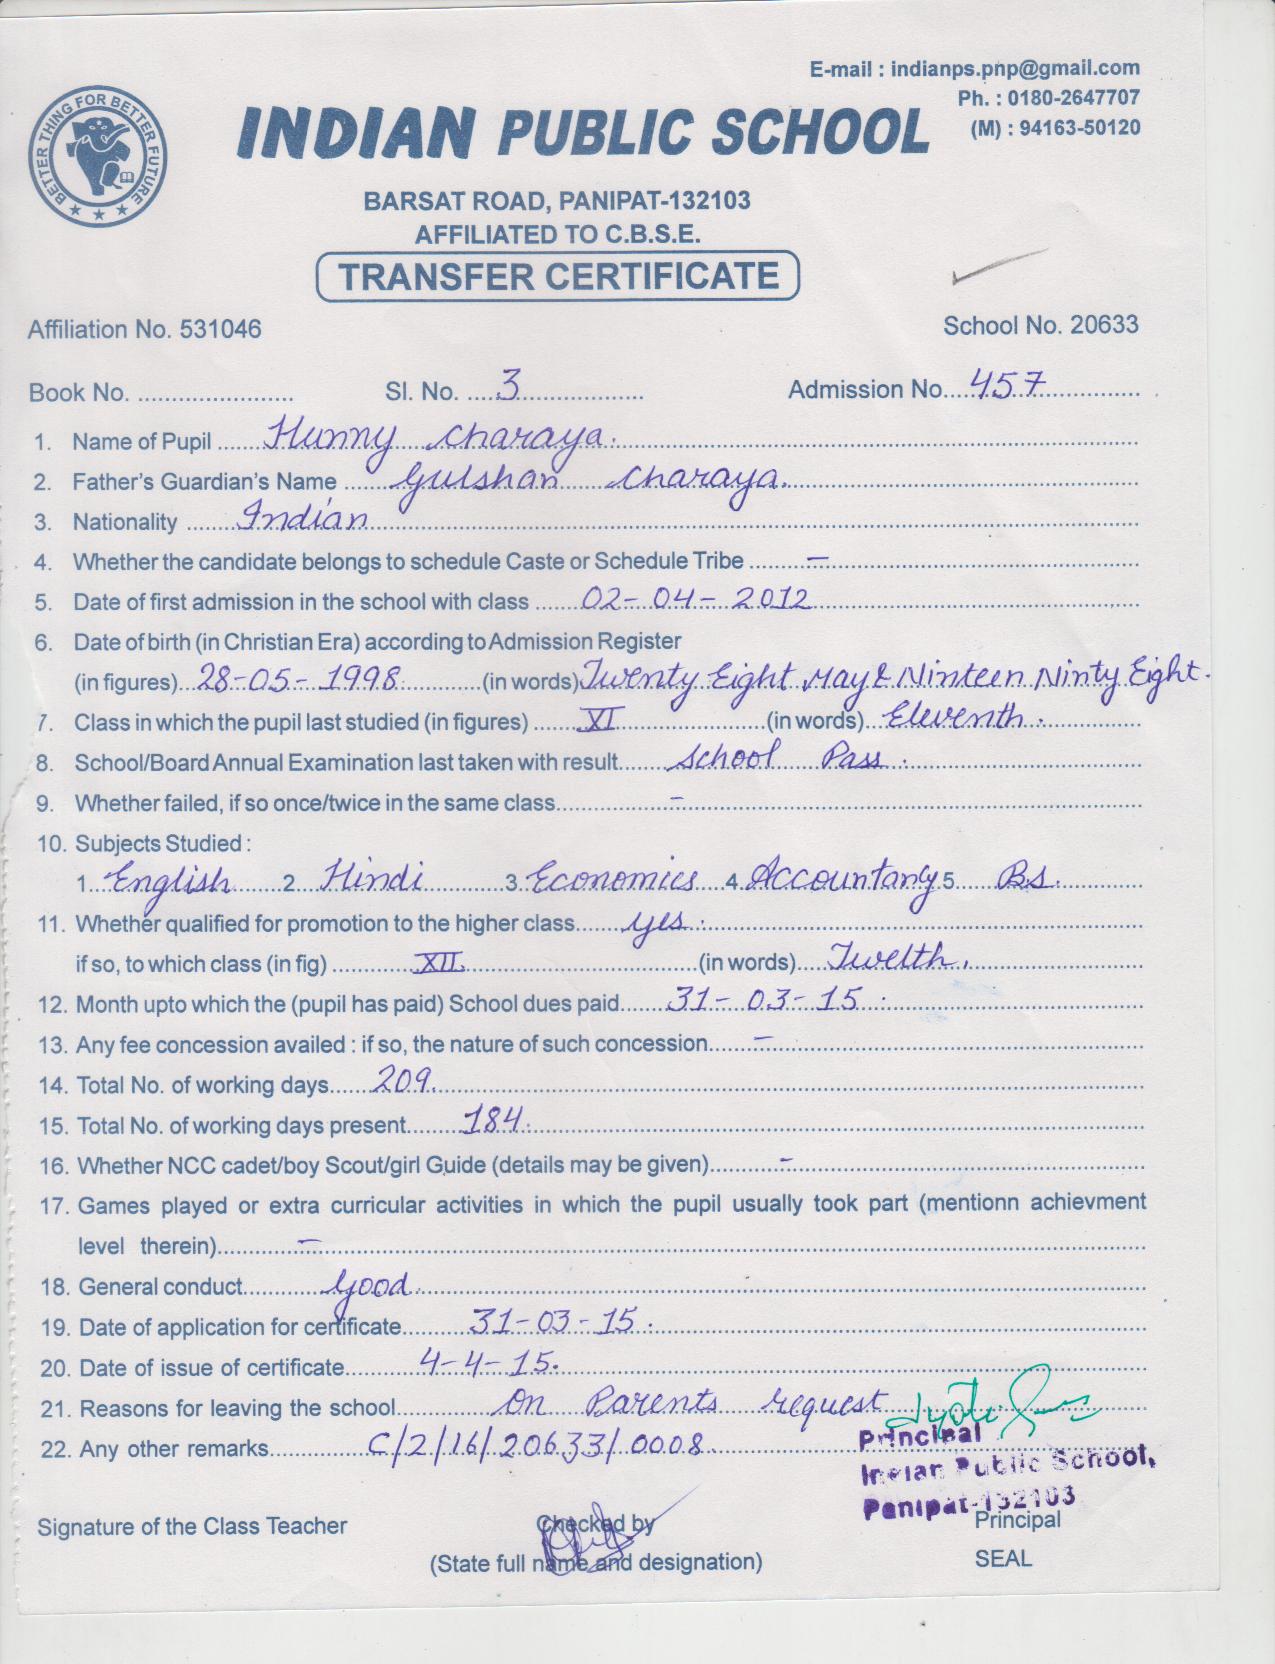 E-mail : indianps.pnp@gmail.com
Ph. : 0180-2647707
(M) : 94163-50120
BETTER THING FOR BETTER FUTURE
INDIAN PUBLIC SCHOOL
BARSAT ROAD, PANIPAT-132103
AFFILIATED TO C.B.S.E.
TRANSFER CERTIFICATE
Affiliation No. 531046 School No. 20633
Book No. ...................... Sl. No. ....3.................. Admission No....457..............
1. Name of Pupil ......Hunny Charaya.
2. Father's Guardian's Name ......Gulshan Charaya.
3. Nationality ......Indian
4. Whether the candidate belongs to schedule Caste or Schedule Tribe ........—
5. Date of first admission in the school with class ......02-04-2012
6. Date of birth (in Christian Era) according to Admission Register
(in figures)...28-05-1998............(in words) Twenty Eight May & Ninteen Ninty Eight.
7. Class in which the pupil last studied (in figures) ......XI..................(in words)...Eleventh.
8. School/Board Annual Examination last taken with result......School Pass.
9. Whether failed, if so once/twice in the same class..............–
10. Subjects Studied :
1...English......2...Hindi............3.Economics...4.Accountancy 5.....B.s.
11. Whether qualified for promotion to the higher class......yes.
if so, to which class (in fig) ............XII..................................(in words)....Twelth.
12. Month upto which the (pupil has paid) School dues paid......31-03-15.
13. Any fee concession availed : if so, the nature of such concession......–
14. Total No. of working days......209.
15. Total No. of working days present.......184.
16. Whether NCC cadet/boy Scout/girl Guide (details may be given)..........–
17. Games played or extra curricular activities in which the pupil usually took part (mentionn achievment
level therein)............–
18. General conduct............Good.
19. Date of application for certificate..........31-03-15.
20. Date of issue of certificate..........4-4-15.
21. Reasons for leaving the school............On Parents request
22. Any other remarks..............C/2/16/20633/0008.
Principal
Indian Public School,
Panipat-132103
Signature of the Class Teacher Checked by Principal
(State full name and designation) SEAL